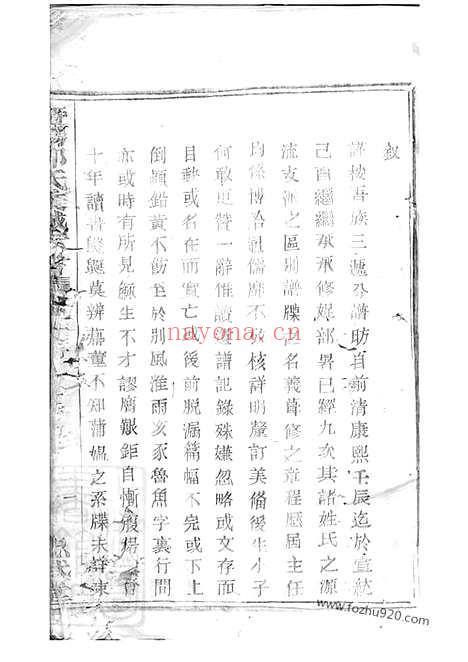 叙
謹按吾族三遷公譜昉自前清康熙壬辰迄於宣統
己酉繼繼承承修媲部署已經九次其諸姓氏之源
流支派之區別譜牒之名義葺修之章程歷屆主任
均係博洽碩儒靡不放核詳明釐訂美備後生小子
何敢更贊一辭惟縱覽譜記錄殊嫌忽略或文存而
目缺或名在而實亡或後前脫漏篇幅不完或下上
倒顛鉛黃不飭至於別風淮雨亥豕魯魚字裏行間
亦或時有所見鯫生不才謬膺艱鉅自慚
十年讀書莫辨嘉董不知蒲媼之系牒未辭東
nayona.cn
www.fozhu920.com